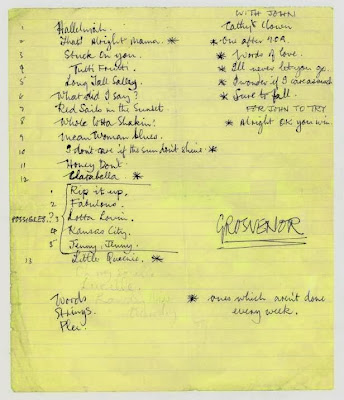 1 Hallelujah.
2 Thats Alright Mama. *
3 Stuck on you.
4 Tutti Frutti
5 Long Tall Sally.
6 What did I say?
7 Red Sails in the Sunset
8 Whole Lotta Shakin'.
9 Mean Woman blues.
10 I dont care if the sun dont shine *
11 Honey Dont.
12 Clarabella *
POSSIBLES..?
1 Rip it up.
2 Fabulous.
3 Lotta Lovin.
4 Kansas City.
5 Jenny, Jenny.
13 Little Queenie. *
Words
Strings.
WITH JOHN
Cathys Clown
* One after 909.
* Words of love.
* I'll never let you go.
* I wonder if I care as much
* Sure to fall.
FOR JOHN TRY
* Alright OK you win
GROSVENOR
* ones which arent done
every week.